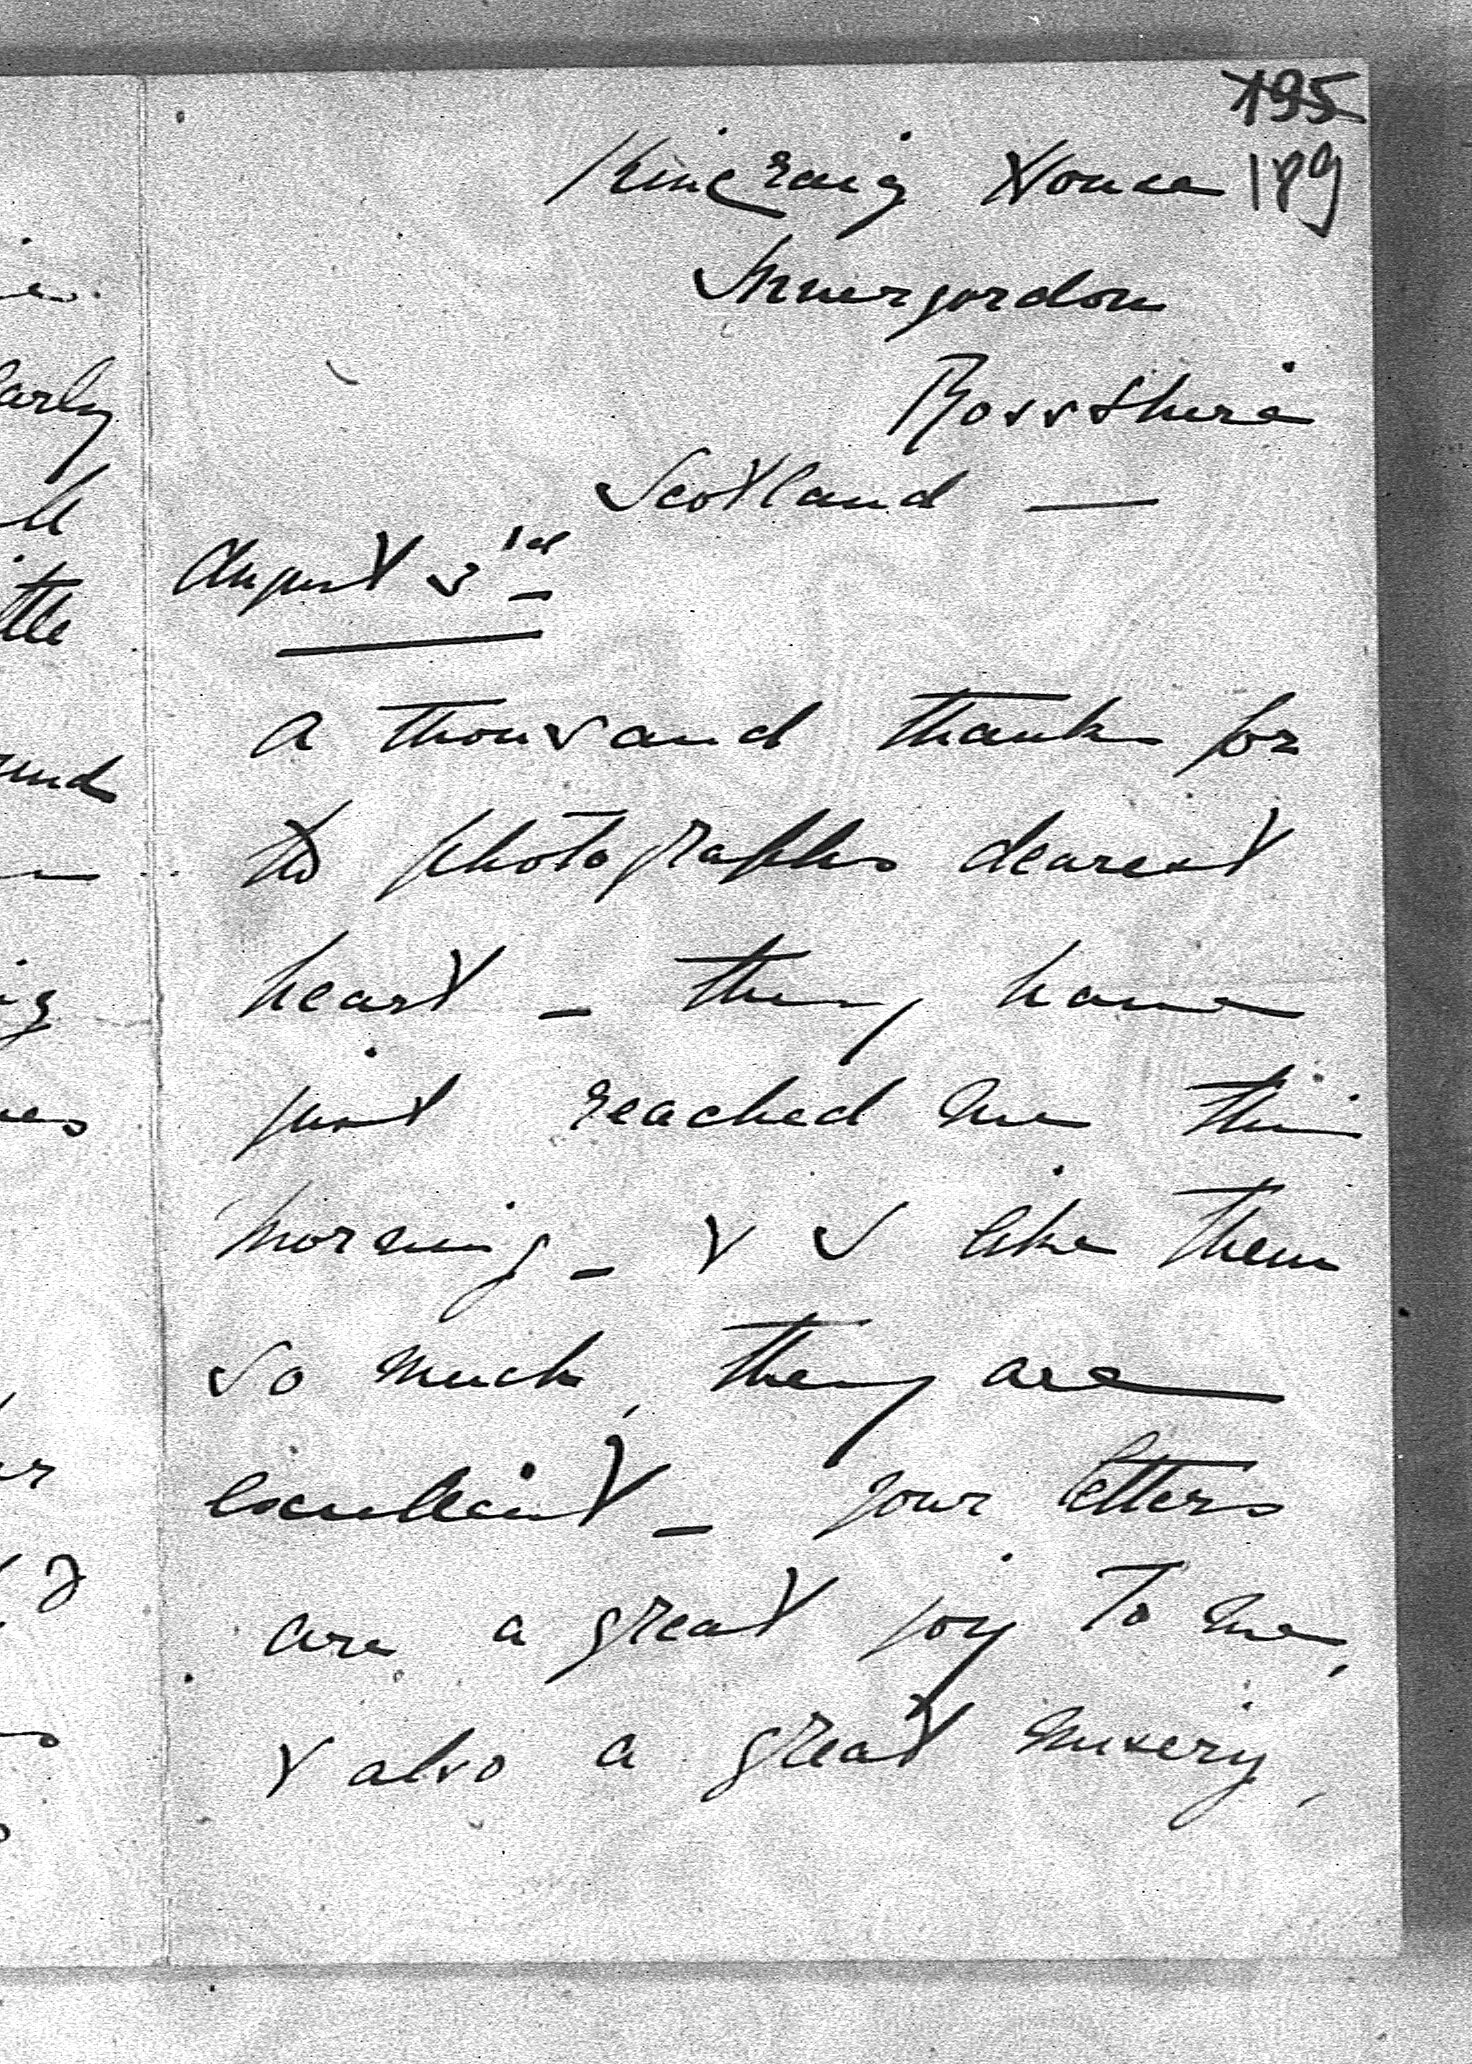 195
189
Kincraig House
Invergordon
Rossshire
Scotland —
August 3rd
a thousand thanks for
the photographs dearest
heart – they have
just reached me this
morning – & I like them
so much, they are
excellent – your letters
are a great joy to me,
& also a great misery,
arly
ttle